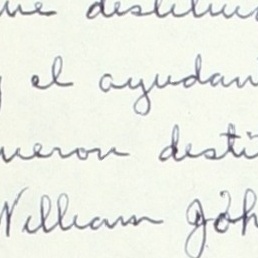 ue destitui
y el ayudan
ueron desti
William Joh